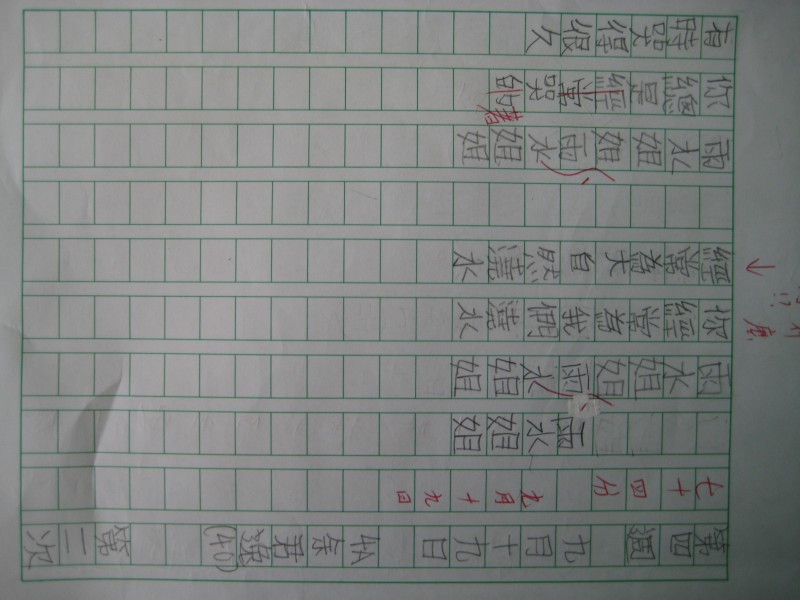 第四週 九月十九日 4A余君 (40) 第二次
七十四分 九月十九
雨水姐姐
雨水姐姐雨水姐姐
你經常為我們澆水
經常為大自然澆水
雨水姐姐雨水姐姐
你總是經常哭的
着
有時哭得很久